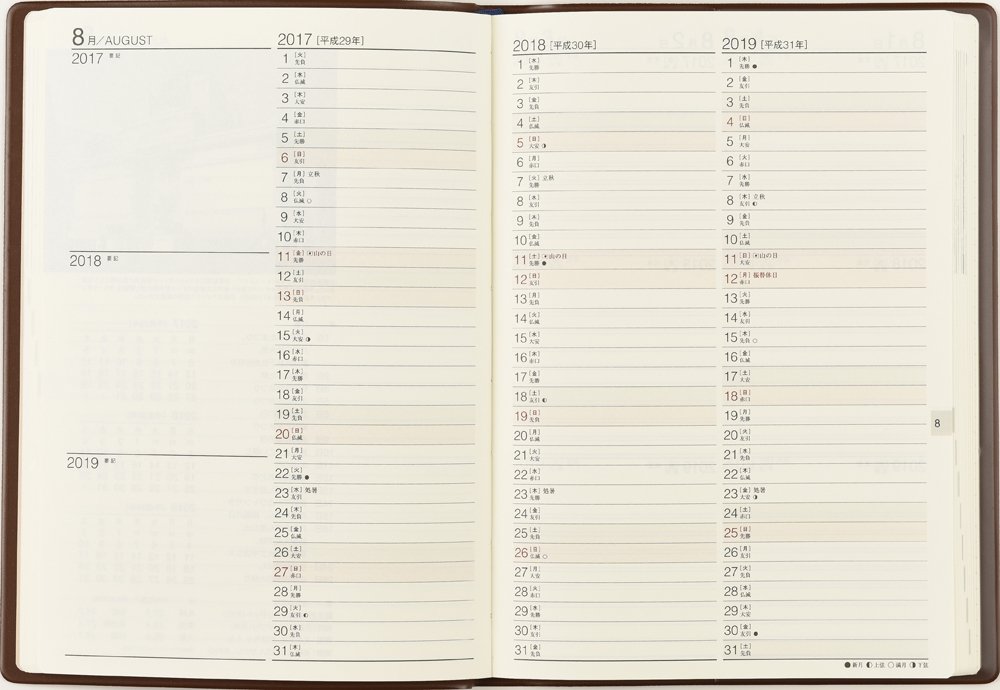 8月/AUGUST
2017 要記
2018 要記
2019 要記
2017 [平成29年]
1 [火]
先負
2 [水]
仏滅
3 [木]
大安
4 [金]
赤口
5 [土]
先勝
6 [日]
友引
7 [月] 立秋
先負
8 [火]
仏滅 ○
9 [水]
大安
10 [木]
赤口
11 [金] ・山の日
先勝
12 [土]
友引
13 [日]
先負
14 [月]
仏滅
15 [火]
大安 ◑
16 [水]
赤口
17 [木]
先勝
18 [金]
友引
19 [土]
先負
20 [日]
仏滅
21 [月]
大安
22 [火]
先勝 ●
23 [水] 処暑
友引
24 [木]
先負
25 [金]
仏滅
26 [土]
大安
27 [日]
赤口
28 [月]
先勝
29 [火]
友引 ◐
30 [水]
先負
31 [木]
仏滅
2018 [平成30年]
1 [水]
先勝
2 [木]
友引
3 [金]
先負
4 [土]
仏滅
5 [日]
大安 ◑
6 [月]
赤口
7 [火] 立秋
先勝
8 [水]
友引
9 [木]
先負
10 [金]
仏滅
11 [土] ・山の日
先勝 ●
12 [日]
友引
13 [月]
先負
14 [火]
仏滅
15 [水]
大安
16 [木]
赤口
17 [金]
先勝
18 [土]
友引 ◐
19 [日]
先負
20 [月]
仏滅
21 [火]
大安
22 [水]
赤口
23 [木] 処暑
先勝
24 [金]
友引
25 [土]
先負
26 [日]
仏滅 ○
27 [月]
大安
28 [火]
赤口
29 [水]
先勝
30 [木]
友引
31 [金]
先負
2019 [平成31年]
1 [木]
先勝 ●
2 [金]
友引
3 [土]
先負
4 [日]
仏滅
5 [月]
大安
6 [火]
赤口
7 [水]
先勝
8 [木] 立秋
友引 ◐
9 [金]
先負
10 [土]
仏滅
11 [日] ・山の日
大安
12 [月] 振替休日
赤口
13 [火]
先勝
14 [水]
友引
15 [木]
先負 ○
16 [金]
仏滅
17 [土]
大安
18 [日]
赤口
19 [月]
先勝
20 [火]
友引
21 [水]
先負
22 [木]
仏滅
23 [金] 処暑
大安 ◑
24 [土]
赤口
25 [日]
先勝
26 [月]
友引
27 [火]
先負
28 [水]
仏滅
29 [木]
大安
30 [金]
友引 ●
31 [土]
先負
8
●新月 ◐上弦 ○満月 ◑下弦